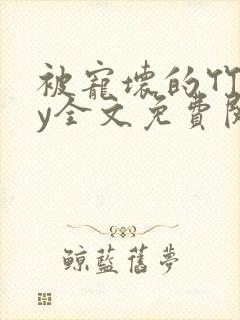 被寵壞的竹
y全文免費閱
鲸藍舊夢